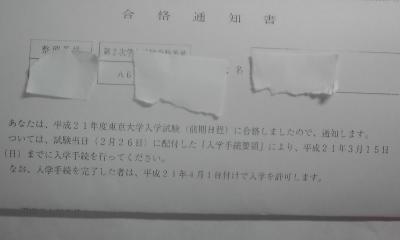 合格通知書
整理番号
第2次学
A6
名
あなたは、平成21年度東京大学入学試験(前期日程)に合格しましたので、通知します。
ついては、試験当日(2月26日)に配付した「入学手続要領」により、平成21年3月15日
(日)までに入学手続を行ってください。
なお、入学手続を完了した者は、平成21年4月1日付けで入学を許可します。